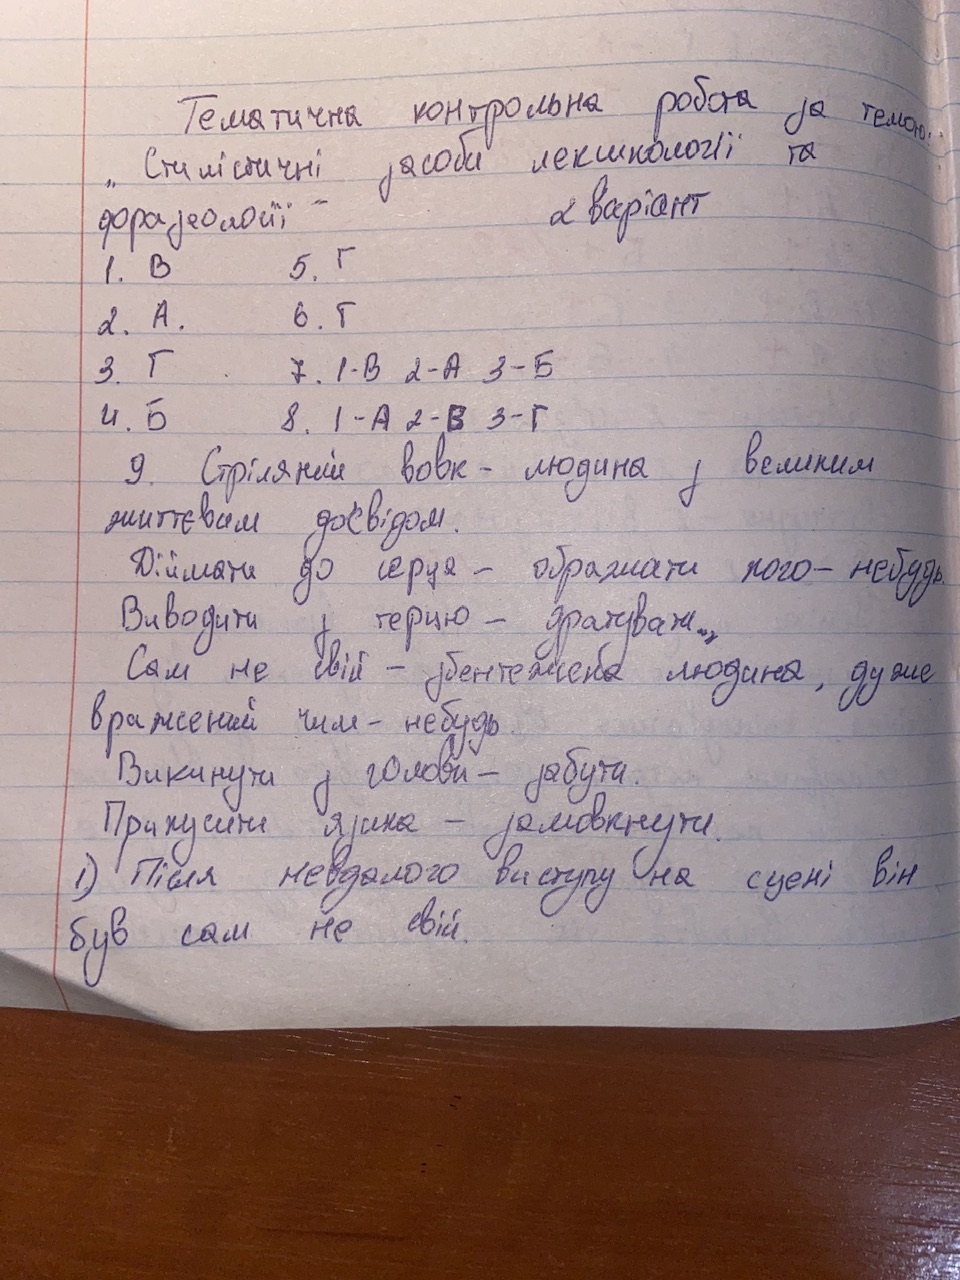 Тематична контрольна робота за темою:
„Стилістичні засоби лексикології та
фразеології" 2 варіант
1. В 5. Г
2. А. 6. Г
3. Г 7. 1-В 2-А 3-Б
4. Б 8. 1-А 2-В 3-Г
9. Стріляний вовк - людина з великим
життєвим досвідом.
Діймати до серця - ображати кого-небудь.
Виводити з терцю - дратувати
Сам не свій - збентежена людина, дуже
вражений чим-небудь.
Викинути з голови - забути.
Прикусити язика - замовкнути.
1) Після невдалого виступу на сцені він
був сам не свій.